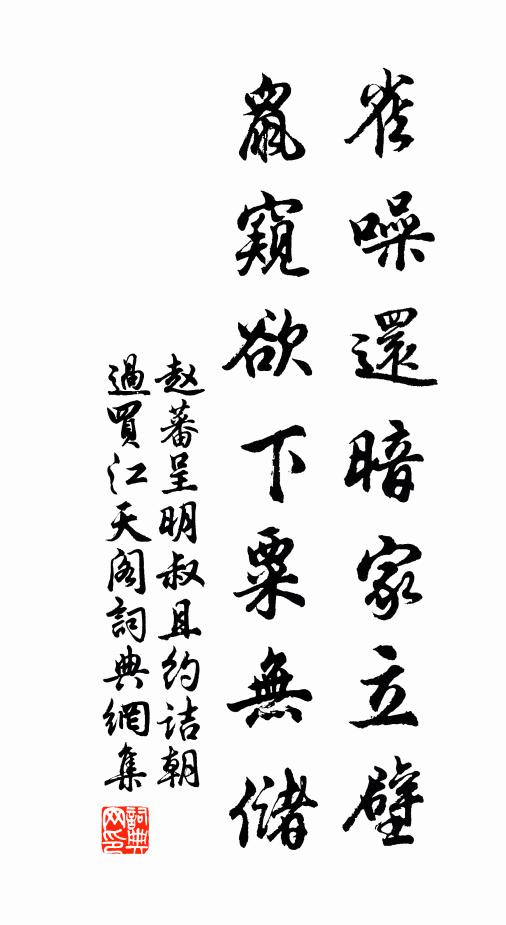 雀噪還暗家立壁
鼠窺欲下粟無儲
赵蕃呈明叔且约诘朝
過買江天阁詞典網集
詞典网印